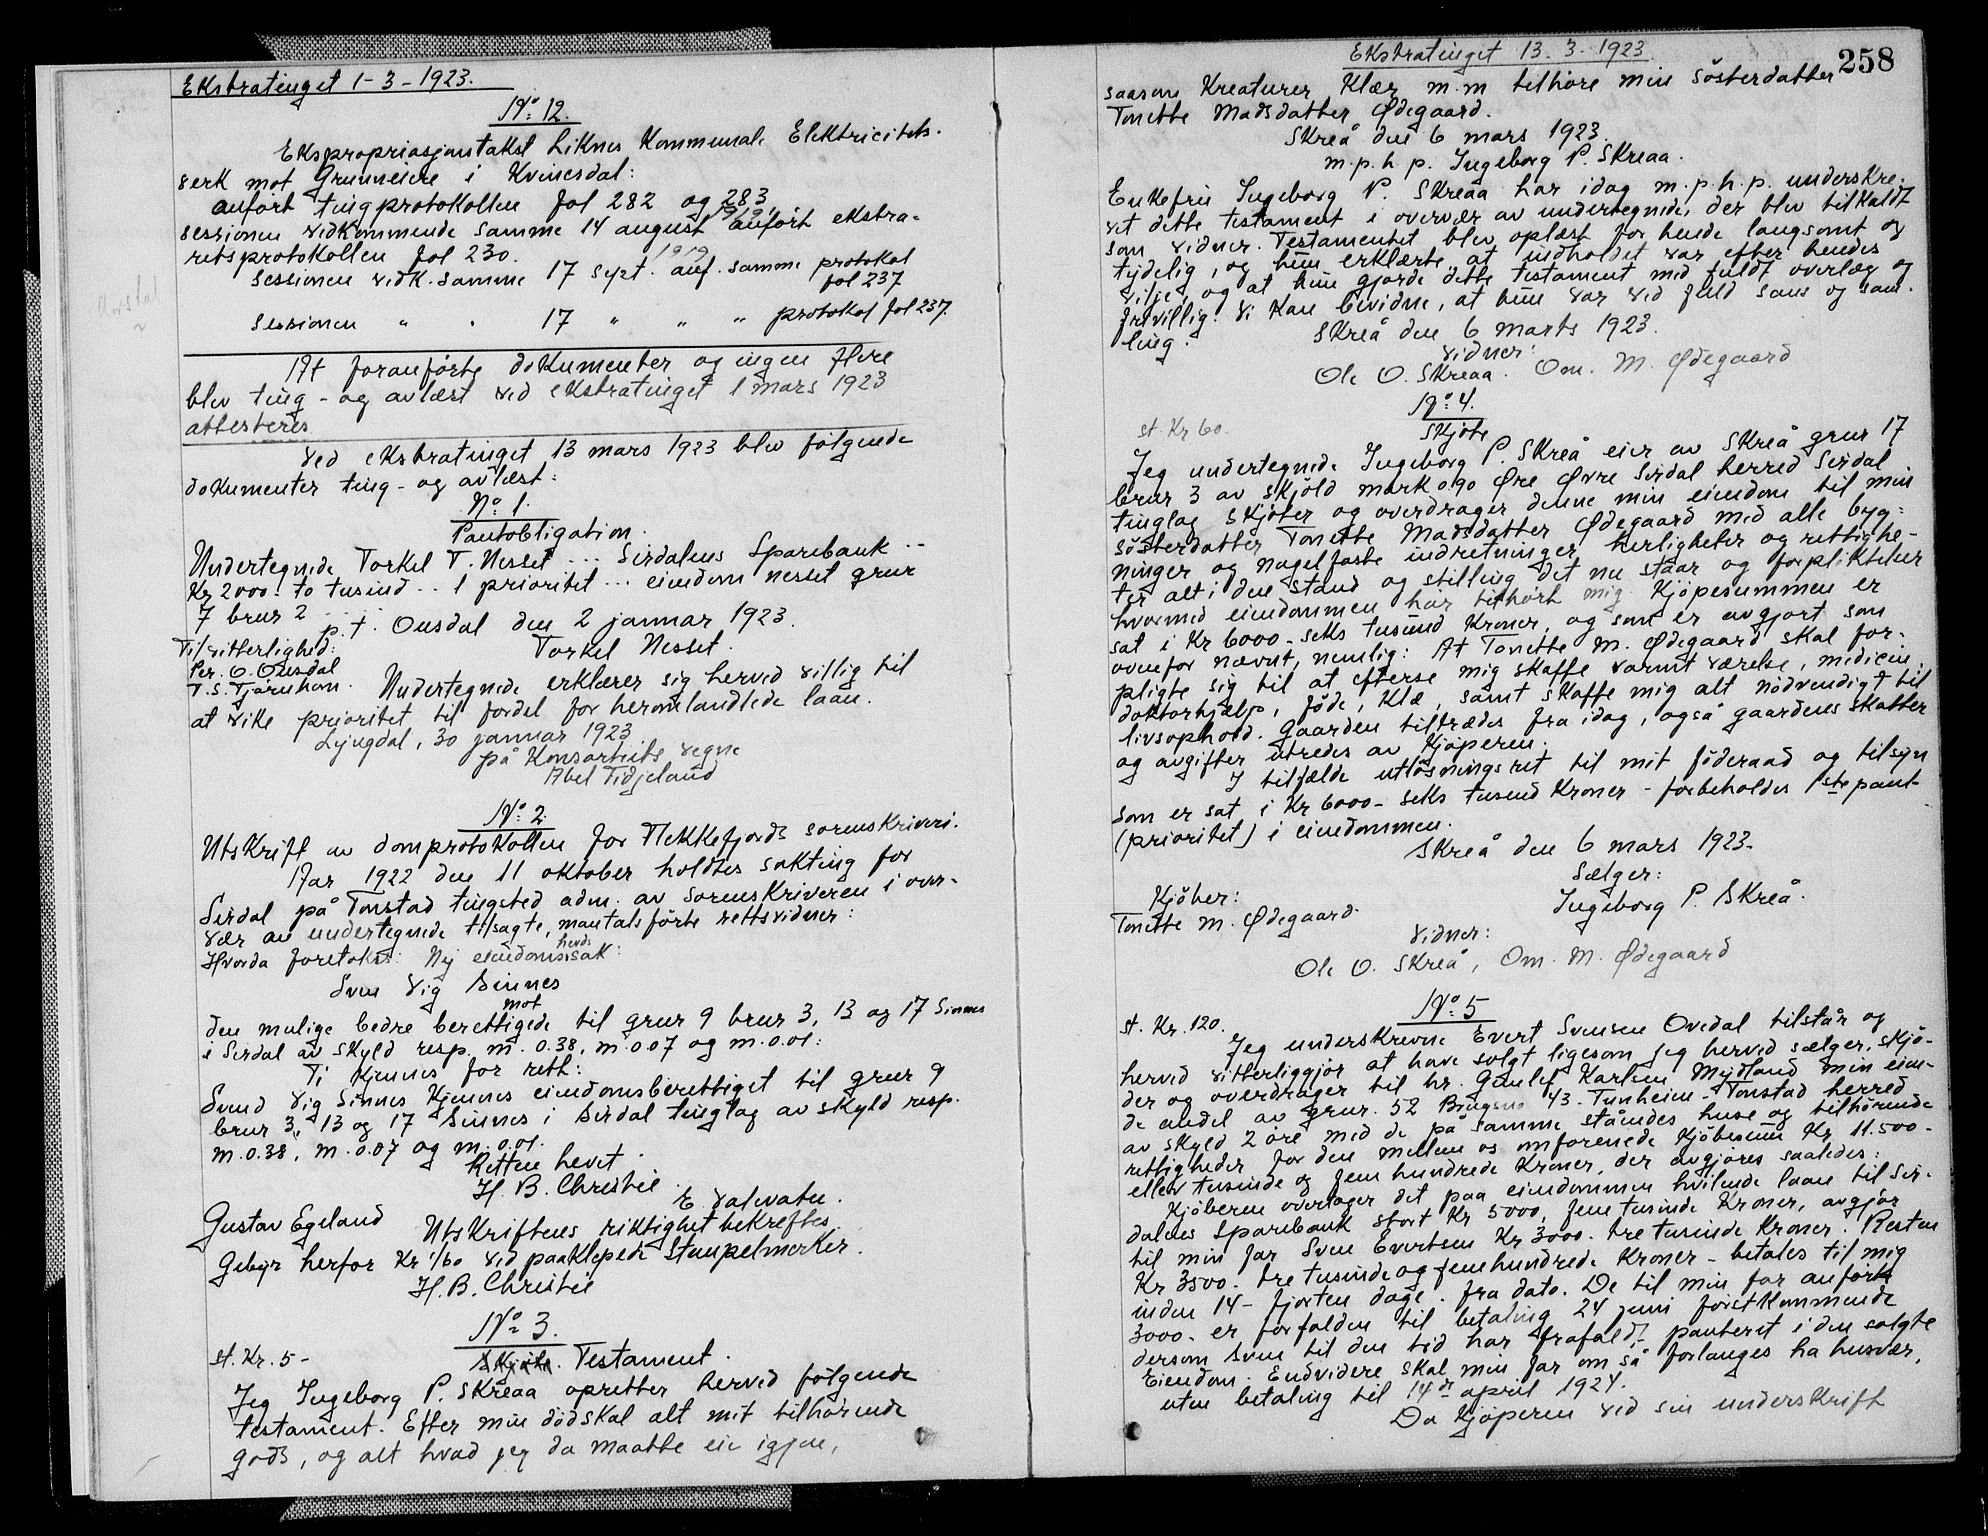 Ekstratinget 1-3-1923.
No 12.
Ekspropriasjonstakst Liknes Kommunale Elektricitets-
verk mot Grunneiere i Kvinesdal:
anført tingprotokollen fol 282 og 283
sessionen vedkommende samme 14 august 1919 anført ekstra-
retsprotokollen fol 230.
Sessionen vedk. samme 17 sept. 1919 anf. samme protokol
fol 237
Sessionen " " 17 " " " protokol fol 237.
At foranførte dokumenter og ingen flere
blev ting- og avlæst ved ekstratinget 1 mars 1923
attesteres
Ved ekstratinget 13 mars 1923 blev følgende
dokumenter ting- og avlæst:
No 1.
Pantobligation.
Undertegnede Torkel T. Nesset ... Sirdalens Sparebank ..
Kr 2000 - to tusind .. 1 prioritet ... eiendom nesset grnr
7 brnr 2 ....
p.t. Ousdal den 2 januar 1923.
Til vitterlighed: Torkel Nesset.
Per. O. Ousdal
T. S. Tjørnhom. Undertegnede erklærer sig herved villig til
at vike prioritet til fordel for heromhandlede laan.
Lyngdal, 30 januar 1923
på Konsortiets vegne
Abel Tidjeland
No 2.
Utskrift av domprotokollen for Flekkefjords sorenskriveri.
Aar 1922 den 11 oktober holdtes sakting for
Sirdal på Tonstad tingsted adm. av sorenskriveren i over-
vær av undertegnede tilsagte, mantalsførte rettsvidner:
Hvorda foretokes: Ny eiendomshevdssak:
Sven Vig Sinnes
mot
den mulige bedre berettigede til grnr 9 brnr 3, 13 og 17 Sinnes
i Sirdal av skyld resp. m. 0.38, m. 0.07 og m. 0.01:
Ti kjennes for rett:
Svend Vig Sinnes kjennes eiendomsberettiget til grnr 9
brnr 3, 13 og 17 Sinnes i Sirdal tinglag av skyld resp.
m. 0.38, m. 0.07 og m. 0.01.
Retten hevet.
H. B. Christie.
E. Dalevatn.
Gustav Egeland Utskriftens riktighet bekreftes
Gebyr herfor Kr 1/60 ved paaklepede stempelmerker.
H. B. Christie
No 3.
st. Kr. 5- Skjøte. Testament.
Jeg Ingeborg P. Skreaa opretter herved følgende
testament. Efter min død skal alt mit tilhørende
gods, og alt hvad jeg da maatte eie igjen,
Ekstratinget 13-3-1923
258
saasom Kreaturer Klær m.m tilhøre min søsterdatter
Tonette Madsdatter Ødegaard.
Skreå den 6 mars 1923.
m.p.h.p. Ingeborg P. Skreaa.
Enkefru Ingeborg P. Skreaa har idag m.p.h.p. underskre-
vet dette testament i overvær av undertegnede, der blev tilkaldt
som vidner. Testamentet blev oplæst for hende langsomt og
tydelig, og hun erklærte at indholdet var efter hendes
vilje, og at hun gjorde dette testament med fuldt overlæg og
frivillig. Vi kan bevidne, at hun var ved fuld sans og sam-
ling. Skreå den 6 marts 1923.
Vidner:
Ole O. Skreaa. Om. M. Ødegaard
No 4.
st. Kr 60. Skjøte
Jeg undertegnede Ingeborg P. Skreå eier av Skreå grnr 17
brnr 3 av skjöld mark 0.90 Øre Øvre Sirdal herred Sirdal
tinglag skjöter og overdrager denne min eiendom til min
søsterdatter Tonette Madsdatter Ødegaard med alle byg-
ninger og nagelfaste indretninger, herligheter og rettighe-
ter alt i den stand og stilling det nu staar og forpliktelser
hvormed eiendommen har tilhørt mig. Kjøpesummen er
sat i Kr 6000 - seks tusind Kroner, og som er avgjort som
ovenfor nævnt, nemlig: At Tonette M. Ødegaard skal for-
pligte sig til at efterse mig skaffe varmt værelse, medicin
doktorhjælp, føde, klæ, samt skaffe mig alt nødvendigt til
livsophold. Gaarden tiltrædes fra idag, også gaardens skatter
og avgifter utredes av Kjøperen.
I tilfælde utløsningsret til mit föderaad og tilsyn
som er sat i Kr 6000 - seks tusend Kroner - forbeholdes 1ste pant-
(prioritet) i eiendommen.
Skreå den 6 mars 1923.
Sælger:
Kjøber: Ingeborg P. Skreå.
Tonette M. Ødegaard.
Vidner:
Ole O. Skreå, Om. M. Ødegaard
No 5
st. Kr. 120.
Jeg underskrevne Evert Svensen Ovedal tilstår og
herved vitterliggjør at have solgt ligesom jeg herved sælger, skjö-
der og overdrager til hr. Gunlef Karlsen Mydland min eien-
de andel av grnr. 52 Brugsno 43. Tunheim - Tonstad herred
av skyld 2 öre med de på samme ståendes huse og tilhørende
rettigheder for den mellem os omforenede Kjöbesum Kr 11.500-
ellev tusinde og fem hundrede Kroner, der avgjøres saaledes:
Kjöberen overtager det paa eiendommen hvilende laan til Sir-
dalens Sparebank stort Kr 5000, fem tusinde Kroner, avgjør
til min far Sven Evertsen Kr 3000. tre tusinde Kroner. Resten
Kr 3500. tre tusinde og femhundrede Kroner - betales til mig
inden 14 - fjorten dage fra dato. De til min far anførte
3000.- er forfalden til betaling 24 juni førstkommende
dersom Sven til den tid har frafaldt panteret i den solgte
Eiendom. Endvidere skal min far om så forlanges ha husvær,
uten betaling til 14de april 1924.
Da kjøperen ved sin underskrift